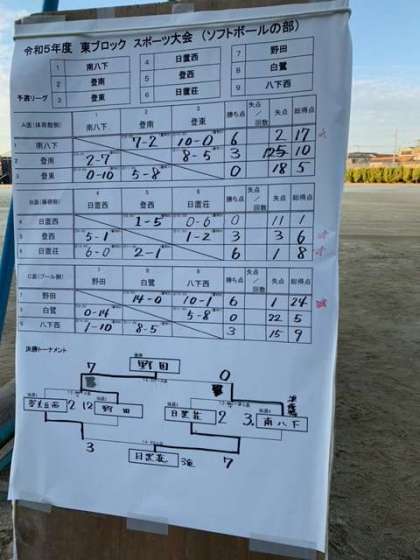 令和5年度 東ブロック スポーツ大会 (ソフトボールの部)
予選リーグ
1 南八下 4 日置西 7 野田
2 登南 5 登西 8 白鷺
3 登東 6 日置荘 9 八下西
1 南八下 2 登南 3 登東 勝ち点 失点/回数 失点 総得点
1 南八下 7-2 10-0 6 2 17
2 登南 2-7 8-5 3 10
3 登東 0-10 5-8 0 18 5
4 日置西 5 登西 6 日置荘 勝ち点 失点/回数 失点 総得点
4 日置西 1-5 0-6 0 11 1
5 登西 5-1 1-2 3 3 6
6 日置荘 6-0 2-1 6 1 8
C面(プール側) 7 野田 8 白鷺 9 八下西 勝ち点 失点/回数 失点 総得点
7 野田 14-0 10-1 6 1 24
8 白鷺 0-14 5-8 0 22 5
9 八下西 1-10 8-5 3 15 9
決勝トーナメント
野田
7 0
2 12 野田 日置荘 2 3 南八下
3 日置荘 7